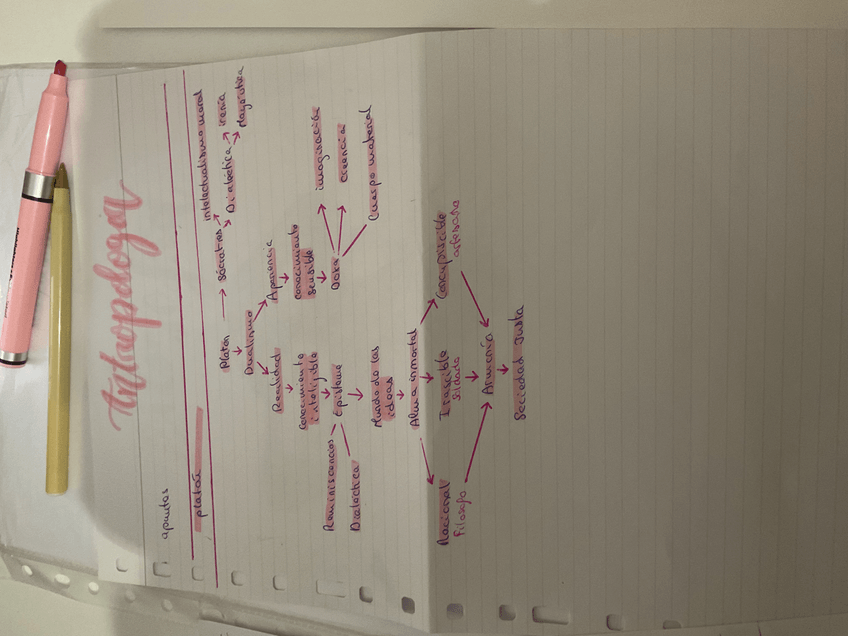 Antropología
apuntes
platón
Platón → Sócrates → intelectualismo moral
→ Dialéctica → ironia
→ Mayéutica
Dualismo
Realidad
Apariencia
conocimiento
inteligible
conocimiento
sensible
Episteme
Doxa
imaginación
creencia
Cuerpo material
Reminiscencias
Dialéctica
Mundo de las
ideas
Alma inmortal
Racional
Filosofo
Irascible
Soldado
Concupiscible
artesano
Armonía
Sociedad Justa